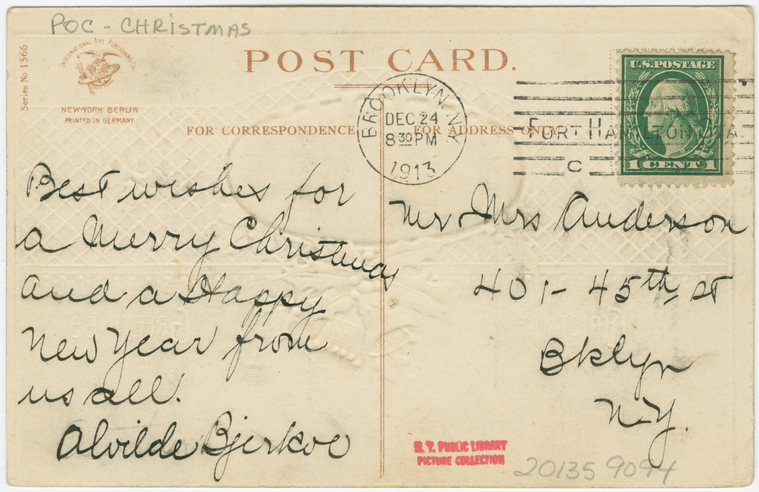 POC - CHRISTMAS
Series No 1566
INTERNATIONAL ART PUBLISHING CO
NEW-YORK BERLIN
PRINTED IN GERMANY
POST CARD.
FOR CORRESPONDENCE
FOR ADDRESS ONLY
BROOKLYN, N.Y.
DEC 24
8 30 PM
1913
FORT HAMILTON STA.
C
U.S. POSTAGE
1 CENT 1
Best wishes for
a Merry Christmas
and a Happy
New Year from
us all.
Alvilde Bjerkoe
Mr Mrs Anderson
401- 45th st
Bklyn
N.Y.
N. Y. PUBLIC LIBRARY
PICTURE COLLECTION
201359094